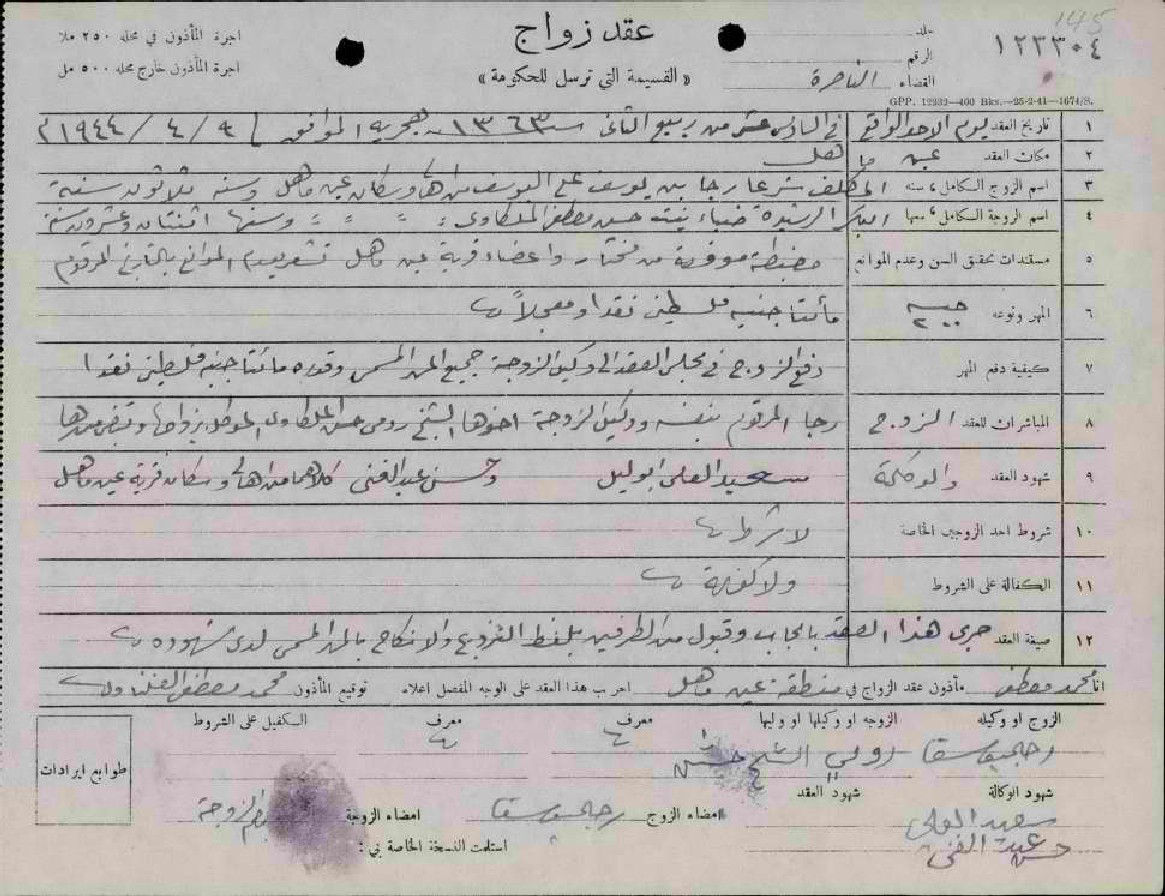 145
١٢٣٣٠٤
عقد زواج
اجرة المأذون في محله ٢٥٠ ملا
جلد
الرقم
«القسيمة التي ترسل للحكومة»
اجرة المأذون خارج محله ٥٠٠ مل
القضاء الناصرة
GPP. 12932—400 Bks.—25-2-41—1674/S.
١ تاريخ العقد يوم الاحد الواقع في السادس عشر من ربيع الثاني سنة ١٣٦٣ هجرية الموافق ٩ / ٤ / ١٩٤٤ م
٢ مكان العقد عين ماهل
٣ اسم الزوج الكامل، سنه المكلف شرعا رجا بن يوسف علي اليوسف من اهالي وسكان عين ماهل وسنه ثلاثون سنة
٤ اسم الزوجة الكامل، سنها البكر الرشيدة ضباء بنت حسن مصطفى الملكاوي = = = = وسنها اثنتان وعشرون سنة
٥ مستندات تحقق السن وعدم الموانع مضبطة موقعة من مختار واعضاء قرية عين ماهل تشعر بعدم الموانع بالتاريخ المرقوم
٦ المهر ونوعه جنيه ٢٠٠ مائتا جنيه فلسطيني نقدا ومعجلاً
٧ كيفية دفع المهر دفع الزوج في مجلس العقد الى وكيل الزوجة جميع المهر المسمى وقدره مائتا جنيه فلسطيني نقدا
٨ المباشران للعقد الزوج رجا المرقوم بنفسه ووكيل الزوجة اخوها الشيخ روحي حسن الملكاوي الموكل بزواجها وقبض مهرها
٩ شهود العقد والوكالة سعيد العلي ابو ليل وحسن عبد الغني كلاهما من اهالي وسكان قرية عين ماهل
١٠ شروط احد الزوجين الخاصة لا شرط
١١ الكفالة على الشروط ولا كفالة
١٢ صيغة العقد جرى هذا العقد بايجاب وقبول من الطرفين بلفظ التزويج والانكاح بالمهر المسمى لدى شهوده
انا محمد مصطفى مأذون عقد الزواج في منطقة عين ماهل اجريت هذا العقد على الوجه المفصل اعلاه توقيع المأذون محمد مصطفى
الزوج او وكيله الزوجه او وكيلها او وليها معرف معرف الكفيل على الشروط
روحي الشيخ حسن
طوابع ايرادات
شهود الوكالة شهود العقد
امضاء الزوج امضاء الزوجة
سعيد العلي
حسن عبد الغني
استلمت النسخة الخاصة بي :